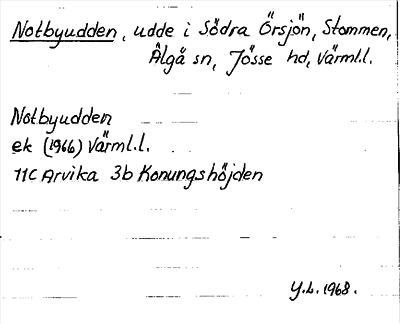 Notbyudden, udde i Södra Örsjön, Stommen,
Älgå sn, Jösse hd, Värml.l.
Notbyudden
ek (1966) Värml.l.
11C Arvika 3b Konungshöjden
Y.L. 1968.